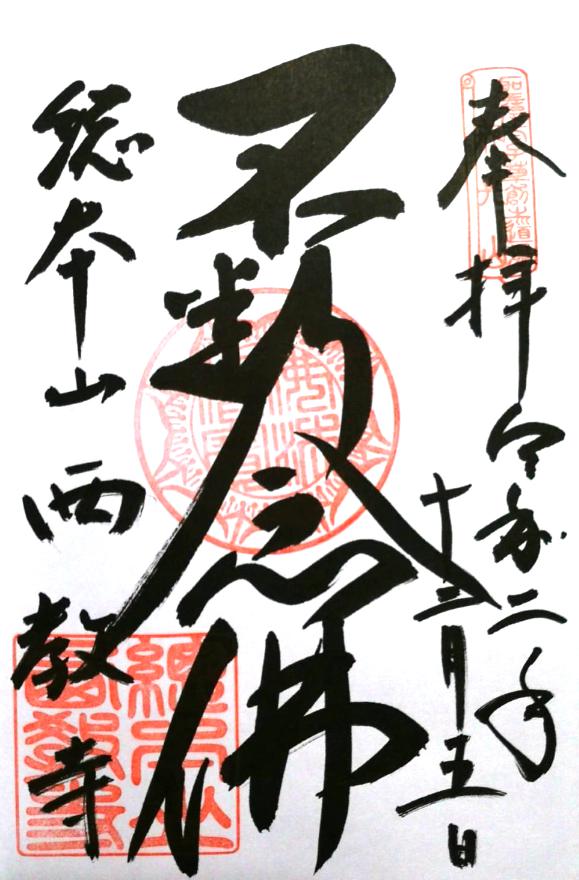 奉拝
令和二年
十二月五日
不断念佛
総本山西教寺
總本山
西教寺